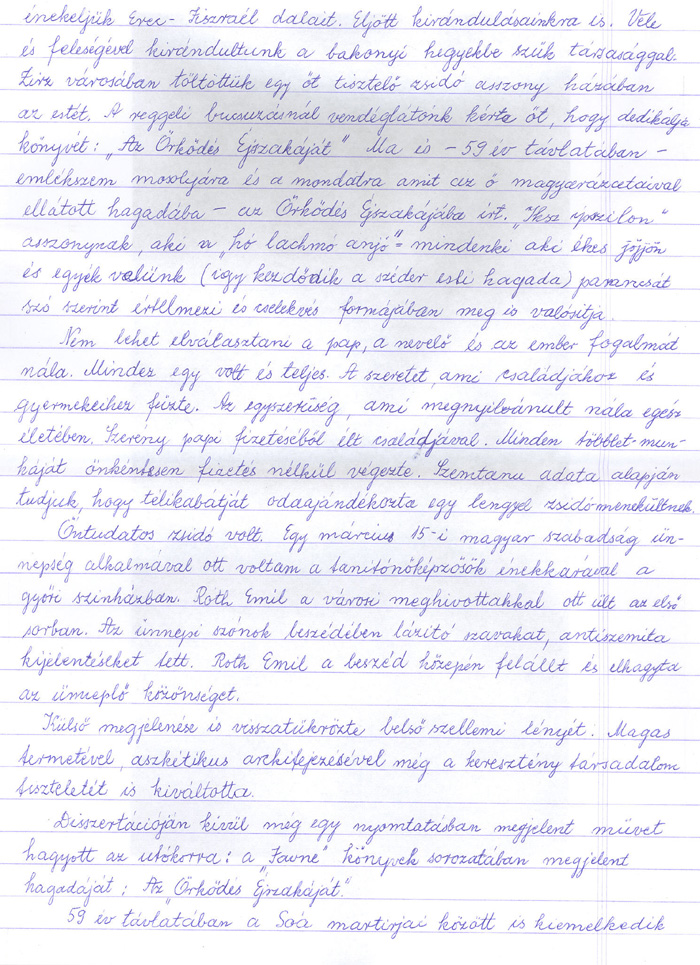 énekeljük Erec-Jiszraél dalait. Eljött kirándulásainkra is. Vele
és feleségével kirándultunk a bakonyi hegyekbe szűk társasággal.
Zirz városában töltöttük egy őt tisztelő zsidó asszony házában
az estét. A reggeli bucsuzásnál vendéglátónk kérte őt, hogy dedikálja
könyvét: „Az Örködés Éjszakáját" Ma is - 59 év távlatában -
emlékszem mosolyára és a mondatra amit az ő magyarázataival
ellátott hagadába - az Örködés Éjszakájába írt. „Ysz ipszilon"
asszonynak, aki a „hó lachmó anjó" = mindenki aki éhes jöjjön
és egyék velünk (így kezdődik a széder esti hagada) parancsát
szó szerint értelmezi és cselekvés formájában meg is valósítja.
Nem lehet elválasztani a pap, a nevelő és az ember fogalmát
nála. Mindez egy volt és teljes. A szeretet, ami családjához és
gyermekeihez fűzte. Az egyszerűség, ami megnyilvánult nála egész
életében. Szerény papi fizetéséből élt családjával. Minden többlet-mun-
káját önkéntesen fizetés nélkül végezte. Szemtanu adata alapján
tudjuk, hogy télikabátját odaajándékozta egy lengyel zsidó-menekültnek.
Öntudatos zsidó volt. Egy március 15-i magyar szabadság ün-
nepség alkalmával ott voltam a tanitónőképzősök énekkarával a
győri szinházban. Roth Emil a városi meghivottakkal ott ült az első
sorban. Az ünnepi szónok beszédében lázitó szavakat, antiszemita
kijelentéseket tett. Roth Emil a beszéd közepén felállt és elhagyta
az ünneplő közönséget.
Külső megjelenése is visszatükrözte belső szellemi lényét. Magas
termetével, aszkétikus arckifejezésével még a keresztény társadalom
tiszteletét is kiváltotta.
Disszertációján kivül még egy nyomtatásban megjelent művet
hagyott az utókorra: a „Javne" könyvek sorozatában megjelent
hagadáját: Az „Örködés Éjszakáját."
59 év távlatában a Soá martirjai között is kiemelkedik